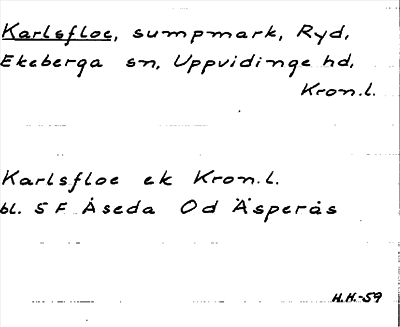 Karlsfloe, sumpmark, Ryd,
Ekeberga sn, Uppvidinge hd,
Kron.l.
Karlsfloe ek Kron.l.
bl. 5 F Åseda Od Äsperås
H.H.-59